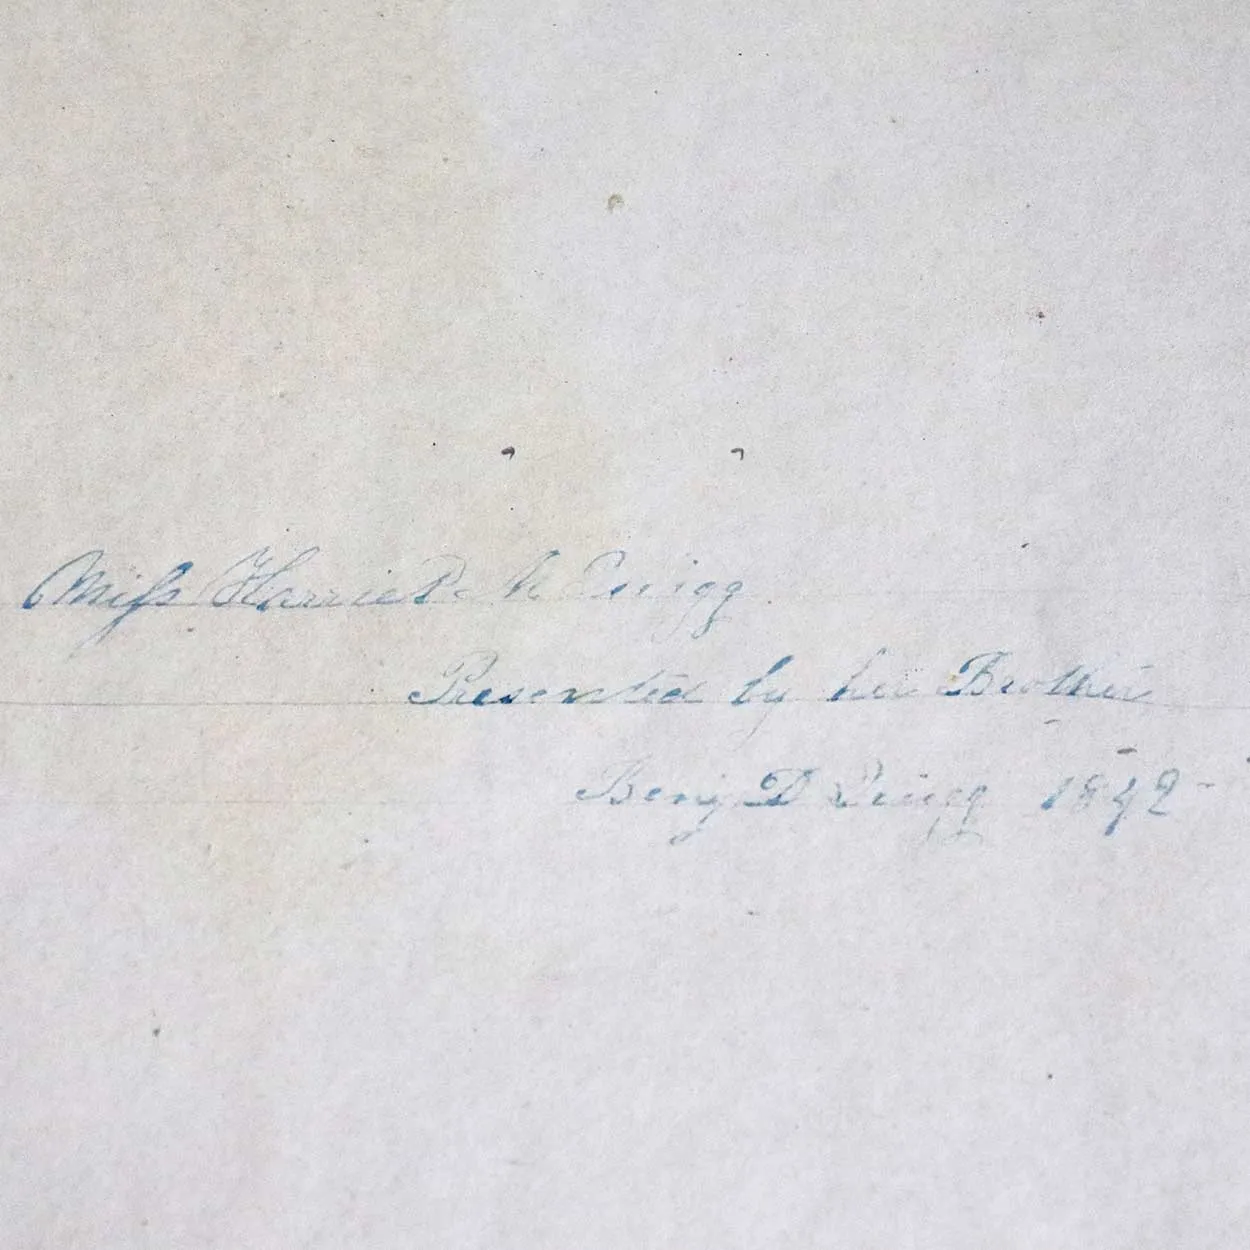 Miss Harriet N Quigg
Presented by her Brother
Benj D Quigg 1842-